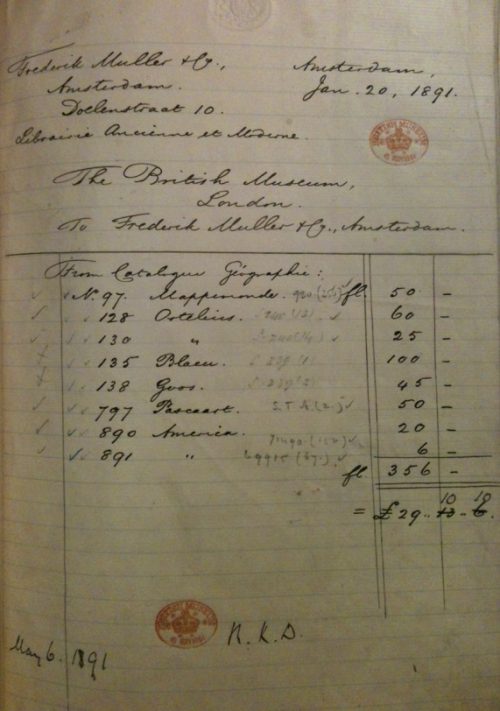 Frederik Muller & Co.,
Amsterdam.
Doelenstraat 10.
Librairie Ancienne et Moderne
Amsterdam,
Jan. 20, 1891.
The British Museum,
London.
To Frederik Muller & Co., Amsterdam.
From Catalogue Géographie:
No. 97. Mappemonde. fl. 50 –
128 Ortelius. 60 –
130 " 25 –
135 Blaeu. 100 –
138 Goos. 45 –
797 Pascaart. 50 –
890 America. 20 –
891 " 6 –
fl. 356 –
10 10
= £ 29.. 13 - 6.
R.K.D.
May 6. 1891